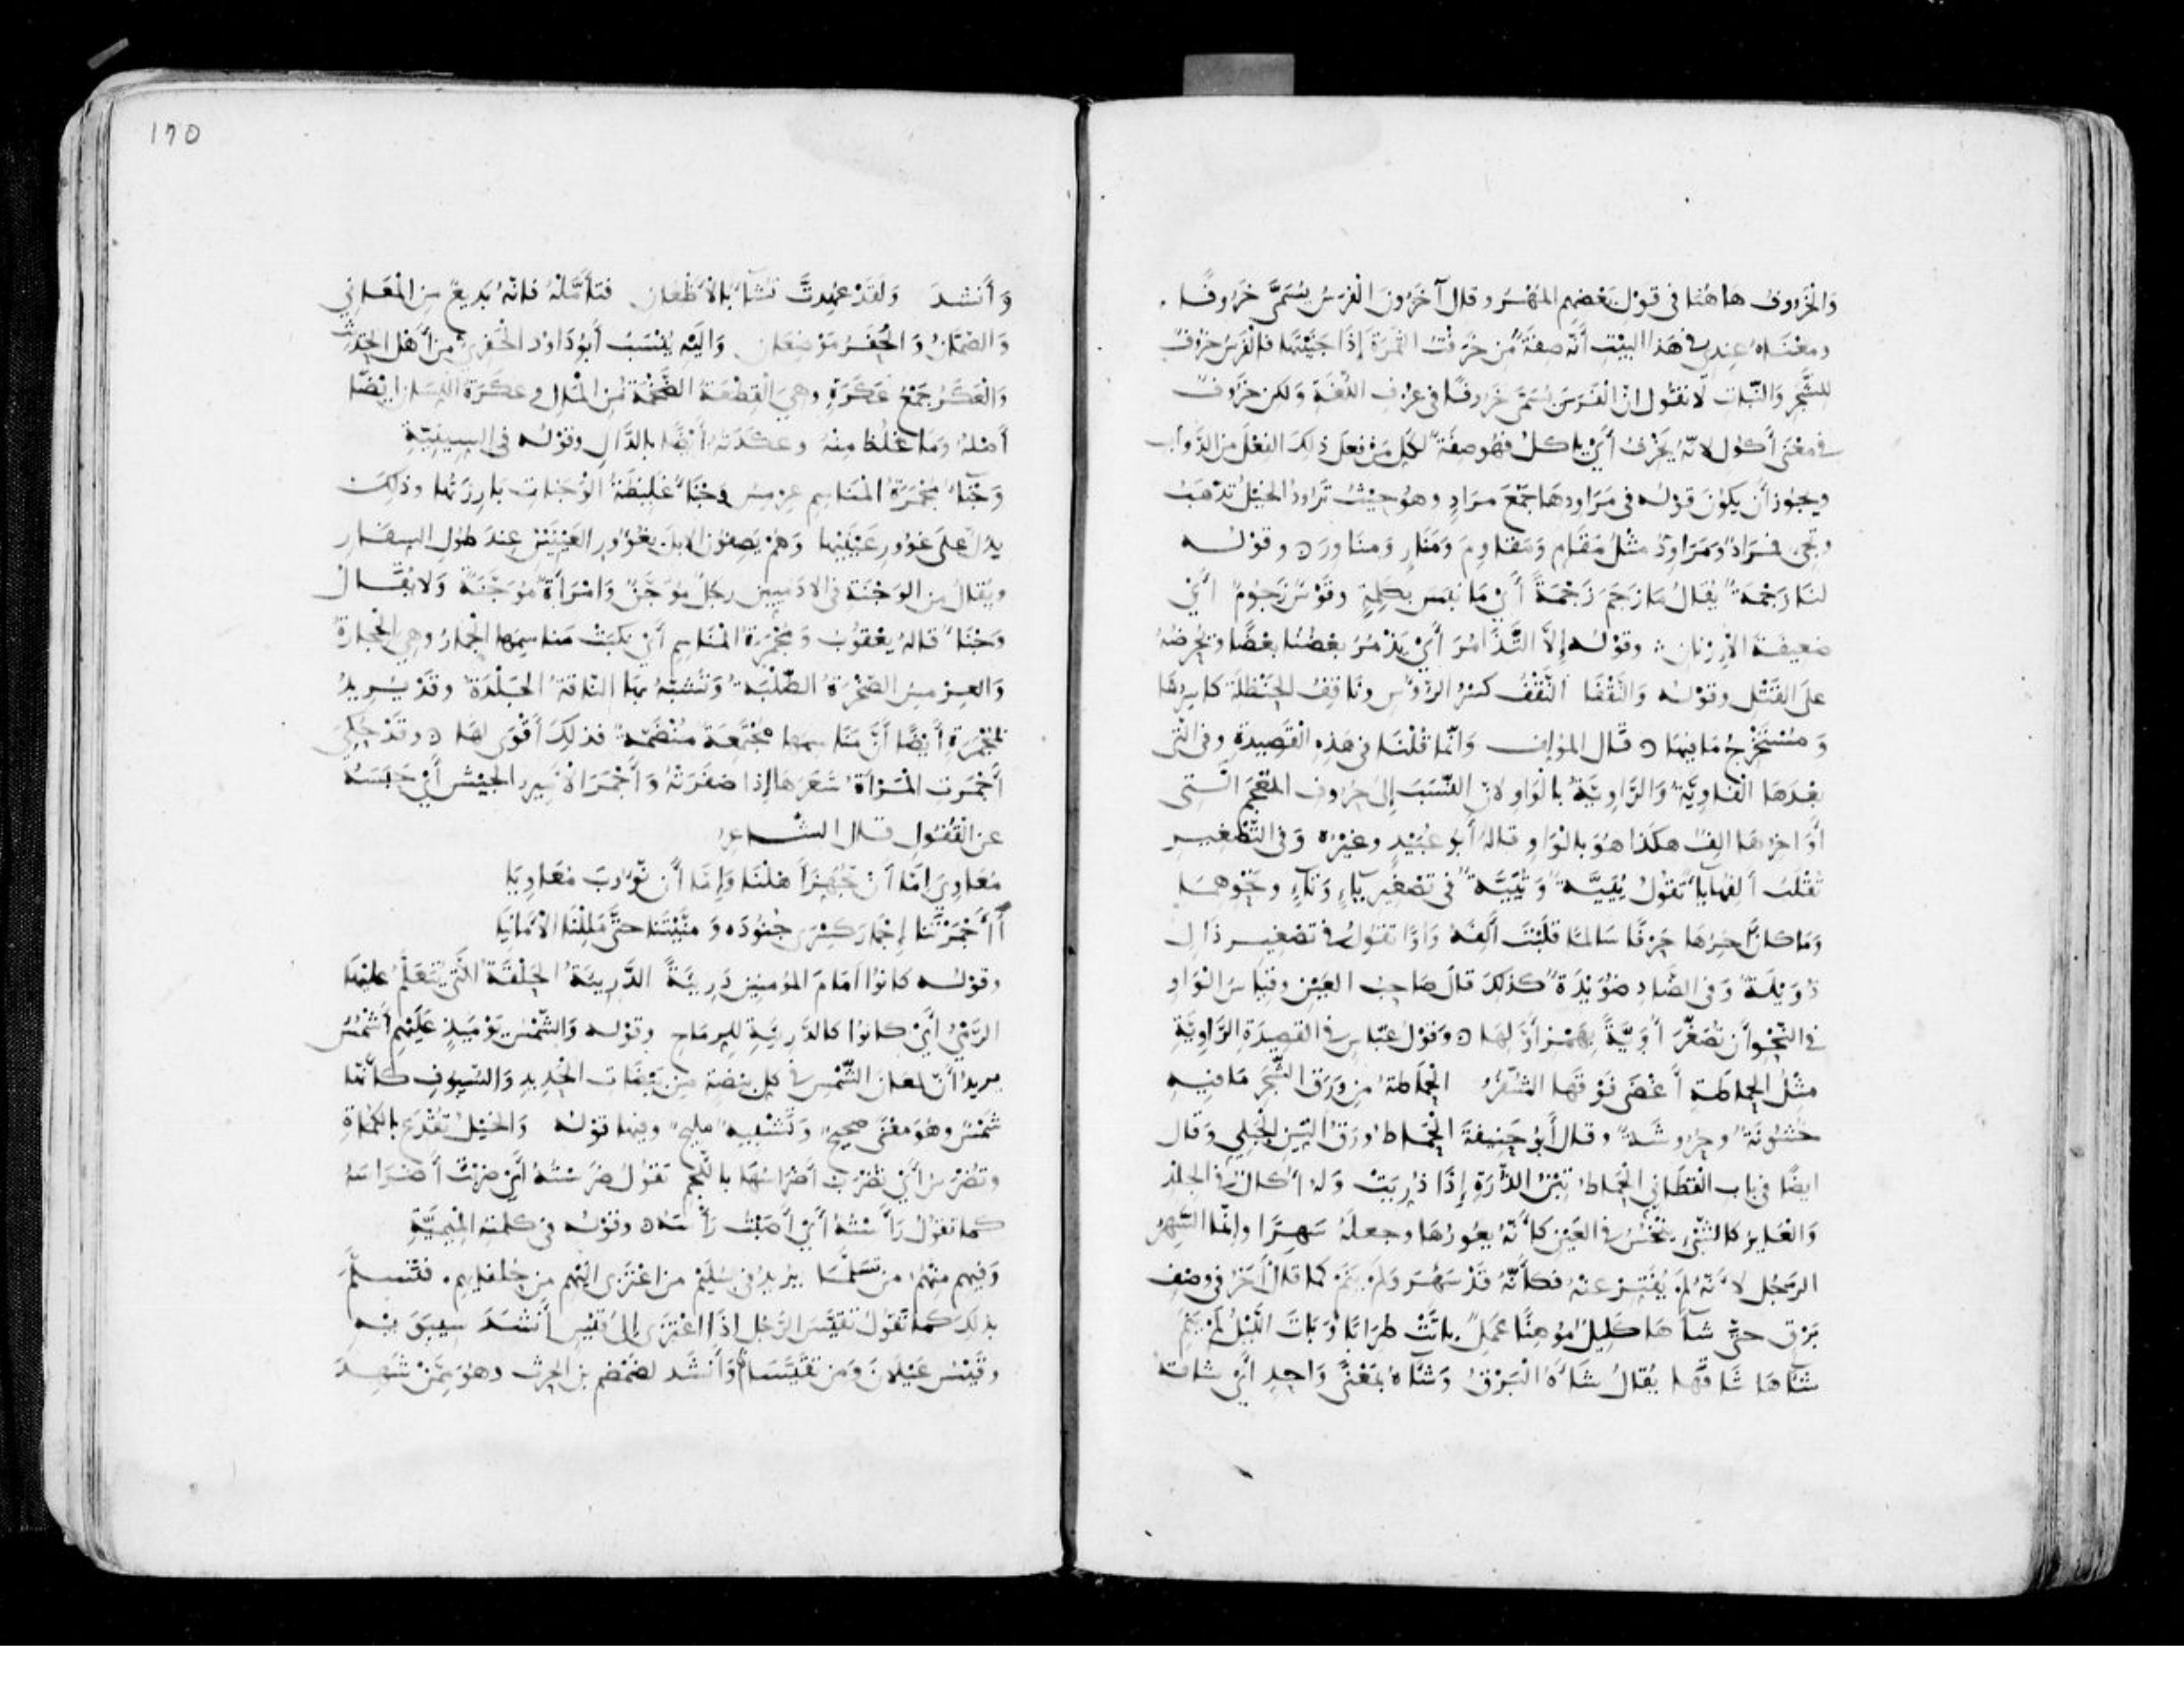 وَالْخَرُوفُ هَاهُنَا فى قَوْلِ بَعْضِهِم المُهْرُ وقال آخَرُونَ الفَرَسُ يُسَمَّى خَرُوفًا .
ومَعْنَاهُ عِنْدِى فى هَذا البَيْتِ أَنَّه صِفَةٌ مِّن خَرَفْتُ الثَّمَرَةَ إِذَا جَنَيْتَهَا فالفَرَسُ خَرُوفٌ
للشَّجَرِ وَالنَّبَاتِ لَا نَقُول انّ الْفَرَسَ يُسَمَّى خَرُوفًا فى عُرْفِ اللُّغَةِ وَلَكِن خَرُوفٌ
فى مَعْنَى أَكُولٍ لانّهُ يَخْرُفُ أَىْ يَاكلُ فهُو صِفَةٌ لِّكُلِّ مَنْ فَعَلَ ذلِكَ الفِعْلَ مِنَ الدَّوَاب
ويجُوز أَن يَكُونَ قَوْلُه فى مَرَاودِهَا جَمْعَ مَرَادٍ وهُو حيْثُ تَرَاودُ الخَيْلُ تَذْهَبُ
وتَجِى فمَرَادٌ وَمَرَاوِدُ مِثْلُ مَقَامٍ وَمَقَاوِمَ وَمَنَارٍ وَمنَاورَ ه وقوْلُه
لنَا زَجْمَةٌ يُقَالُ مَا زَجَمَ زَجْمَةً أَىْ مَا نَبَس بِكَلِمَةٍ وقَوْسٌ زَجُومٌ أَىْ
ضَعِيفَة الْإِرْنَانِ ه وقوْلُه إِلَّا التَّذَامُرَ أَىْ يَذْمُرُ بَعْضُنا بَعْضًا ويُحَرِّضُهُ
علَى القَتْلِ وقوْلُه وَالنَّقْفَا النَّقْفُ كسْرُ الرُؤُسِ ونَاقِفُ الحَنْظَلَة كَاسِرُهَا
وَ مُسْتَخْرِجُ مَا فِيهَا ه قَال المؤلف وَانّمَا قُلْنَا فى هَذِهِ القَصِيدَةِ وفى الَّتى
بَعْدَهَا الْفَاوِيَّةُ وَالرَّاوِيَّةُ بالْوَاوِ لانّ النَّسَبَ إِلَى حُرُوفِ المعْجَم الَّتِى
أَوَاخِرُهَا الِفٌ هكَذا هُوَ بالْوَاوِ قالهُ أَبو عُبَيْدٍ وغيْرُه وَفى التَّصْغِيرِ
تُقْلَبُ أَلِفُهَا يَا تَقُولُ يُيَيَّةٌ وَ ثُيَيَّةٌ فى تَصْغِير يَاءٍ وَثَاءٍ ونَحْوِهِمَا
وَمَا كانَ آخِرُهَا حَرْفًا سَالمًا قلبْتَ أَلِفَهُ وَاوًا تقُولُ فى تَصْغِيرِ ذَالٍ
ذُوَيْلَةٌ وَفى الضَّادِ ضُوَيْدَةٌ كذلكَ قَالَ صَاحِبُ العَيْنِ وقياسُ الْوَاوِ
فى النَّحْوِ أَن تُصَغَّرَ أُوَيَّةً بِهَمْزِ أَوَّلِهَا ه وَقوْلُ عبَّاسٍ فى القصِيدَةِ الرَّاوِيَّةِ
مِثْلُ الحَمَاطَةِ أَغْضَى فَوْقَهَا الشُّفُرُ الحَمَاطةُ مِن وَرَقِ الشَّجَر مَا فِيهِ
خُشُونَةٌ وحُرُوشَةٌ وقال أَبُو حَنِيفَةَ الحَمَاطُ وَرَقُ التِّينِ الجَبَلِى وَقال
ايضًا فى بابِ الْقَطَانِى الحَمَاطُ تِبْنُ الذُّرَةِ إِذَا ذُرِيَتْ وَلهُ أُكَالٌ فى الجِلْد
وَالْعَايِرُ كالشَّىْءِ يَنْخُسُ فى العَيْنِ كأَنّهُ يَعُورُهَا وجعلَهُ سَهِرًا وانّمَا السَّهِرُ
الرَّجُل لانّهُ لَمْ يُفَتَّرْ عنهُ فكأَنّهُ قَدْ سَهِرَ وَلَمْ يَنَمْ كما قَالَ آخَرُ فى وَصْفِ
بَرْقٍ حتَّى شآهَا كَلِيلٌ مَوْهِنًا عَمِلٌ . باتَتْ طِرَابًا وَبَاتَ اللّيْلَ لَمْ يَنَمِ
شَآهَا شَاقَهَا يُقالُ شَاءَهُ الْبَرْقُ وَشَآهُ بِمَعْنًى وَاحِدٍ أَىْ شاقهُ
١٦٥
وَ أَنشدَ وَلَقَدْ عَهِدتُّ تُشَاءُ بالأَظْعَانِ فتَأَمَّلْهُ فانّهُ بَدِيعٌ مِن المَعَانِى
وَالصَّمَّانُ وَ الْحَفَرُ مَوْضِعَانِ وَالَيْهِ يُنْسَبُ أَبُو دَاوُد الحَفَرِىّ مِنْ أَهْلِ الحَدِيثِ
وَالْعَكَرُ جَمْعُ عَكَرَةٍ وهِىَ الْقِطْعَةُ الضَّخْمَةُ مِنَ الْمَالِ و عكَرَةُ اللّسَان ايْضًا
أَصْلُهُ وَمَا غَلُظَ مِنْهُ وعكَدَتُهُ أَيْضًا بالدَّالِ وقوْلُه فى السِينِيَّةِ
وَجْنَاءُ مُجْمَرَةُ المَنَاسِمِ عِرْمِسُ وَجْنَاءُ غَلِيظَةُ الوَجَنَاتِ بَارِزَتُهَا وذلِكَ
يدُلّ علَى غَؤُورِ عَيْنَيْهَا وَهُمْ يَصِفُون الابلَ بِغُؤُورِ العَيْنَيْنِ عِندَ طُولِ السِفَارِ
ويُقالُ مِن الوَجْنَةِ فى الادَمِيينَ رجُلٌ مُوَجَّنٌ وَامْرَأَةٌ مُوَجَّنَةٌ وَلا يُقَالُ
وَجْنَاءُ قالهُ يَعْقُوبُ وَ مُجْمَرَةُ الْمَنَاسِمِ أَىْ نكَبَتْ مَنَاسِمَهَا الجِمَارُ وهِى الحِجَارَةُ
وَالعِرْمِسُ الصَّخْرَةُ الصُّلْبَةُ وَتُشَبَّهُ بِهَا النّاقَةُ الجَلْدَةُ وقَدْ يُرِيدُ
بمُجْمَرَةِ أَيْضًا أَنَّ مَنَاسِمَهَا مُجْتَمِعَةٌ مُنْضَمّةٌ فذلِكَ أَقْوَى لهَا ه وقَدْ حُكِىَ
أَجْمَرَتِ الْمَرْأَةُ شَعَرَهَا إِذا ضَفَرَتْهُ وَ أَجْمَرَ الأَمِيرُ الجَيْشَ أَىْ حَبَسَهُ
عن الْقُفُولِ قال الشّاعِرُ
مُعَاوِىَ إِمّا أَنْ تُجَهِّزَ أَهْلَنَا وَإِمَّا أَن نَؤُوبَ مُعَاوِيَا
أَأَجْمَرْتَنا إِجْمَارَ كِسْرَى جُنُودَهُ وَ منَّيْتَنا حتَّى مَلِلْنَا الأَمَانِيَا
وقوْلُه كانُوا أَمَامَ المُومِنِينَ دَرِيئَةً الدَّرِيئَةُ الحَلْقَةُ الَّتى يُتَعَلَّمُ علَيْهَا
الرَّمْىُ أَىْ كانُوا كالدَّرِيئَةِ للرِمَاحِ وقوْلُه وَالشَّمْسُ يَوْمَئِذٍ عَلَيْهِمْ أَشْمُسُ
يريدُ أَنّ لمَعَانَ الشَّمْسِ فى كلِّ بَيْضَةٍ مِن بَيْضَاتِ الحَدِيدِ وَالسُّيُوفِ كأَنَّهَا
شَمْسٌ وهُوَ مَعْنًى صحِيحٌ وَتَشْبِيهٌ مَلِيحٌ وفيهَا قوْلُهُ وَالخَيْلُ تُقْدَعُ بالكُمَاةِ
وتُضْرَسُ أَىْ تُضْرَبُ أَضْرَاسُهَا باللُّجُمِ تَقُولُ ضَرَسْتُهُ أَىْ ضرَبْتُ أَضْرَاسَهُ
كما تقُولُ رَأَسْتُهُ أَىْ أَصَبْتُ رَأْسَهُ ه وقوْلُه فى كَلِمَتِهِ المِيمِيَّةِ
وَفِيهِم مِنْهُمُ مَن تسَلَّمَا يُرِيدُ فى سُلَيْمٍ منِ اعْتَزَى الَيْهِم مِن حُلَفَايِهِم . فتَسَلَّمَ
بذلِكَ كما تَقُولُ تَقَيَّسَ الرَّجُلُ إِذَا اعْتَزَى إِلى قَيْسٍ أَنْشَدَ سِيبَوَيْهِ
وقَيْسُ عَيْلانَ وَمَن تقَيَّسَا وَأَنشَد لضَمْضَمِ بنِ الحرِثِ وهُوَ مِمَّنْ شَهِدَ